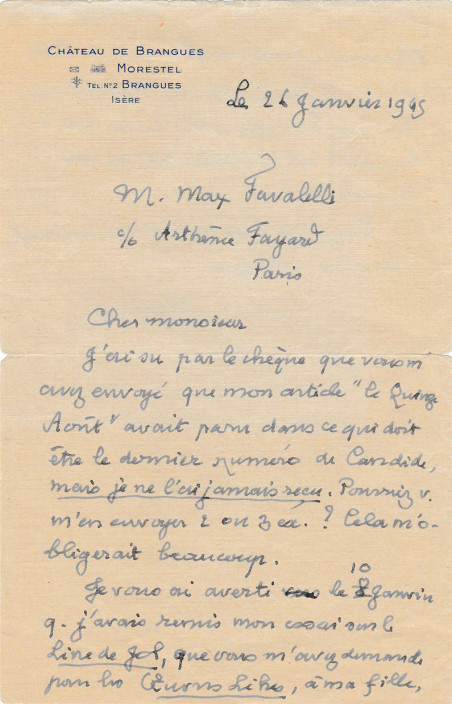 CHÂTEAU DE BRANGUES
MORESTEL
TEL. Nº2 BRANGUES
ISÈRE
Le 26 Janvier 1945
M. Max Favalelli
c/o Arthème Fayard
Paris
Cher monsieur
J'ai su par le chèque que vous m'
avez envoyé que mon article "le Quinze
Août" avait paru dans ce qui doit
être le dernier numéro de Candide,
mais je ne l'ai jamais reçu. Pourriez v.
m'en envoyer 2 ou 3 ex. ? Cela m'o-
bligerait beaucoup.
10
Je vous ai averti le Janvier
q. j'avais remis mon essai sur le
Livre de Job, que vous m'avez demandé
pour les Œuvres Libres, à ma fille,